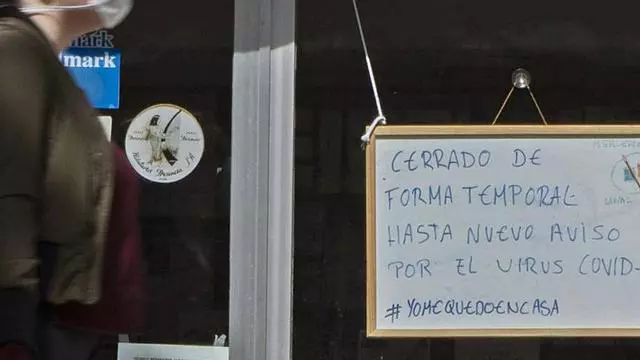 mark
mark
CERRADO DE
FORMA TEMPORAL
HASTA NUEVO AVISO
POR EL VIRUS COVID-
#YOMEQUEDOENCASA